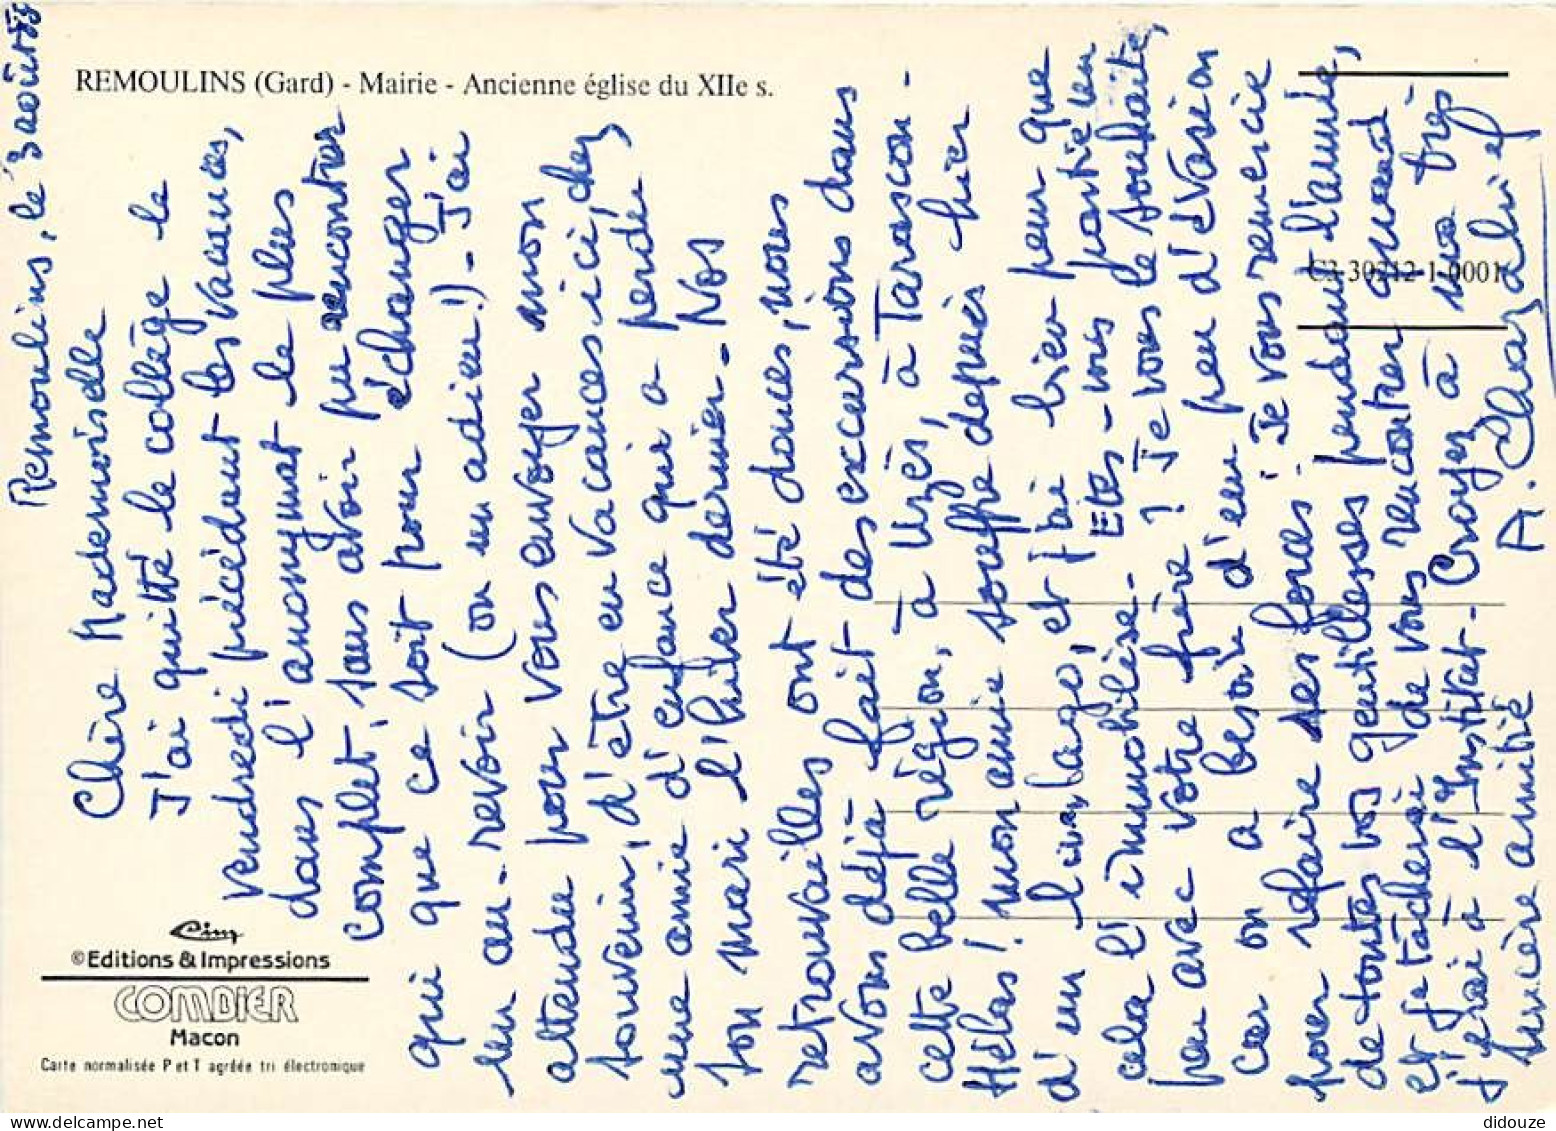 REMOULINS (Gard) - Mairie - Ancienne église du XIIe s.
Remoulins, le 3 août
Chère Mademoiselle
J'ai quitté le collège le
vendredi précédant les vacances,
dans l'anonymat le plus
complet, sans avoir pu rencontrer
qui que ce soit pour échanger
un au-revoir (ou un adieu!) - J'ai
attendu pour vous envoyer mon
souvenir, d'être en vacances ici, chez
une amie d'enfance qui a perdu
son mari l'hiver dernier - Nos
retrouvailles ont été douces, nous
avons déjà fait des excursions dans
cette belle région, à Uzès, à Tarascon -
Hélas! mon amie souffre depuis hier
d'un lumbago, et j'ai bien peur que
cela l'immobilise - Etes-vous partie un
peu avec votre frère? Je vous le souhaite,
car on a besoin d'un peu d'évasion
pour refaire ses forces. Je vous remercie
de toutes vos gentillesses pendant l'année,
et je tâcherai de vous rencontrer quand
j'irai à l'Institut - Croyez à ma très
sincère amitié
A.
C3 30212-1-0001
Cim
©Editions & Impressions
COMBIER
Macon
Carte normalisée P et T agréée tri électronique
didouze